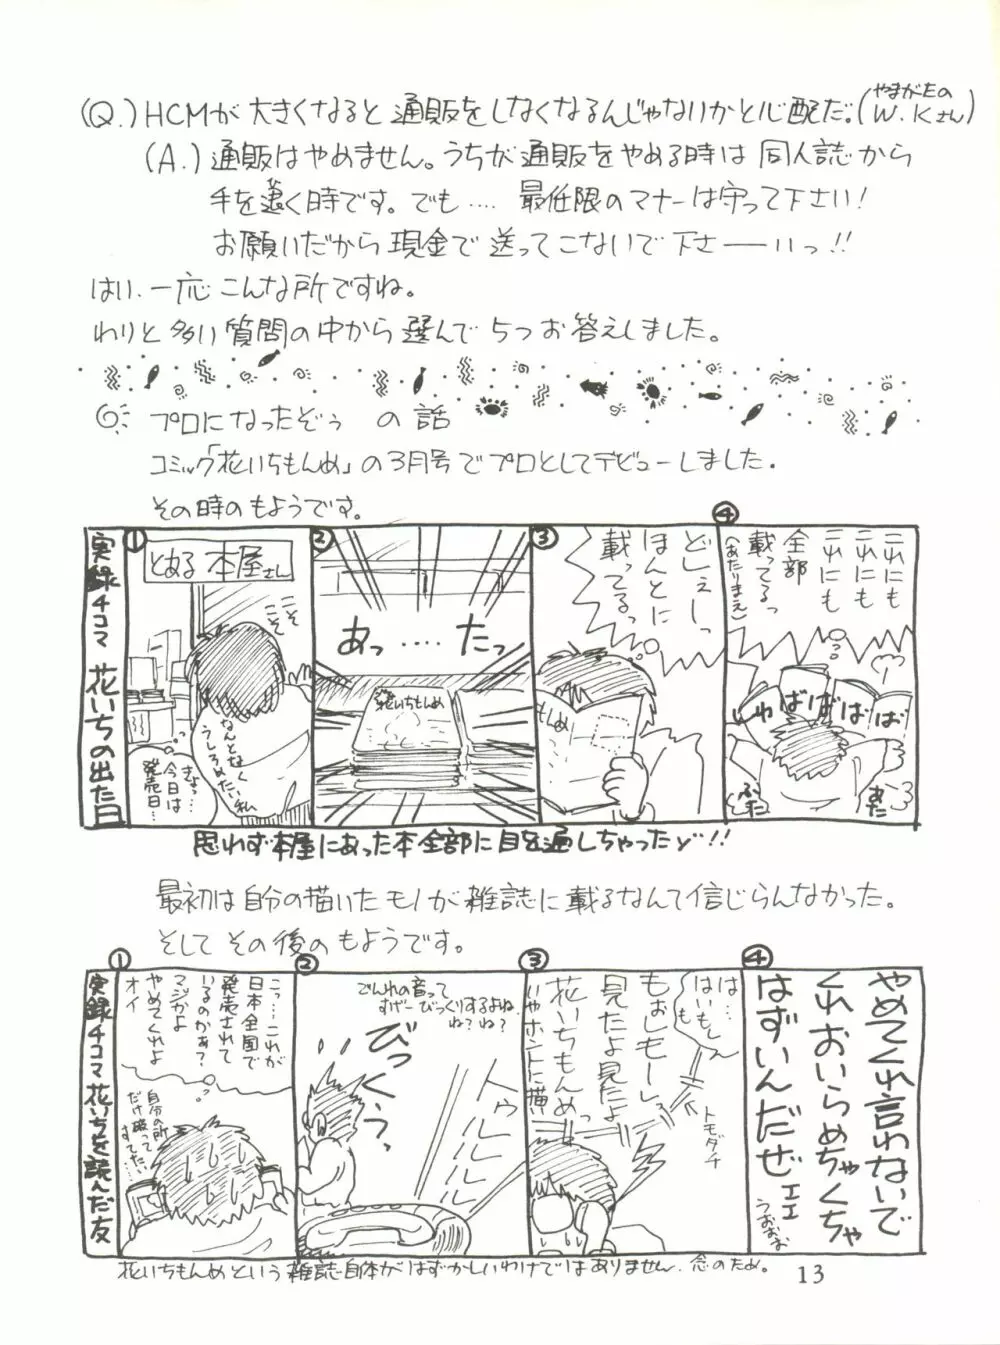 (Q.) HCMが大きくなると通販をしなくなるんじゃないかと心配だ。(やまがたのW.Kさん)
(A.) 通販はやめません。うちが通販をやめる時は同人誌から
手を退く時です。でも‥‥最低限のマナーは守って下さい!
お願いだから現金で送ってこないで下さ——いっ!!
はい、一応こんな所ですね。
わりと多い質問の中から選んで5つお答えしました。
◎ プロになったぞぅ の話
コミック「花いちもんめ」の3月号でプロとしてデビューしました。
その時のもようです。
実録4コマ 花いちの出た日
①
とある本屋さん
こそこそ
なんとなく
うしろめたい私
きょ…
今日は
発売日…
②
あっ‥‥たっ
花いちもんめ
③
どしぇーっ
ほんとに
載ってるっ
もんめ
④
これにも
これにも
これにも
全部
載ってるっ
(あたりまえ)
しゅばばばばば
あたふた
思わず本屋にあった本全部に目を通しちゃったy!!
最初は自分の描いたモノが雑誌に載るなんて信じらんなかった。
そしてその後のもようです。
実録4コマ 花いちを読んだ友
①
こっ…これが
日本全国で
発売されて
いるのかぁ?
マジかよ
やめてくれよ
オイ
自分の所
だけ破って
すてたい
②
でんわの音って
すげーびっくりするよね
ね?ね?
びっくぅっ
トゥルルルルル
③
は…
はいもしもし
もぉしもーしっ
見たよ見たよ
花いちもんめっ
いやホントに描い
トモダチ
④
やめてくれ言わないで
くれおいらめちゃくちゃ
はずいんだぜェェ
うおおお
花いちもんめという雑誌自体がはずかしいわけではありません。念のため。
13